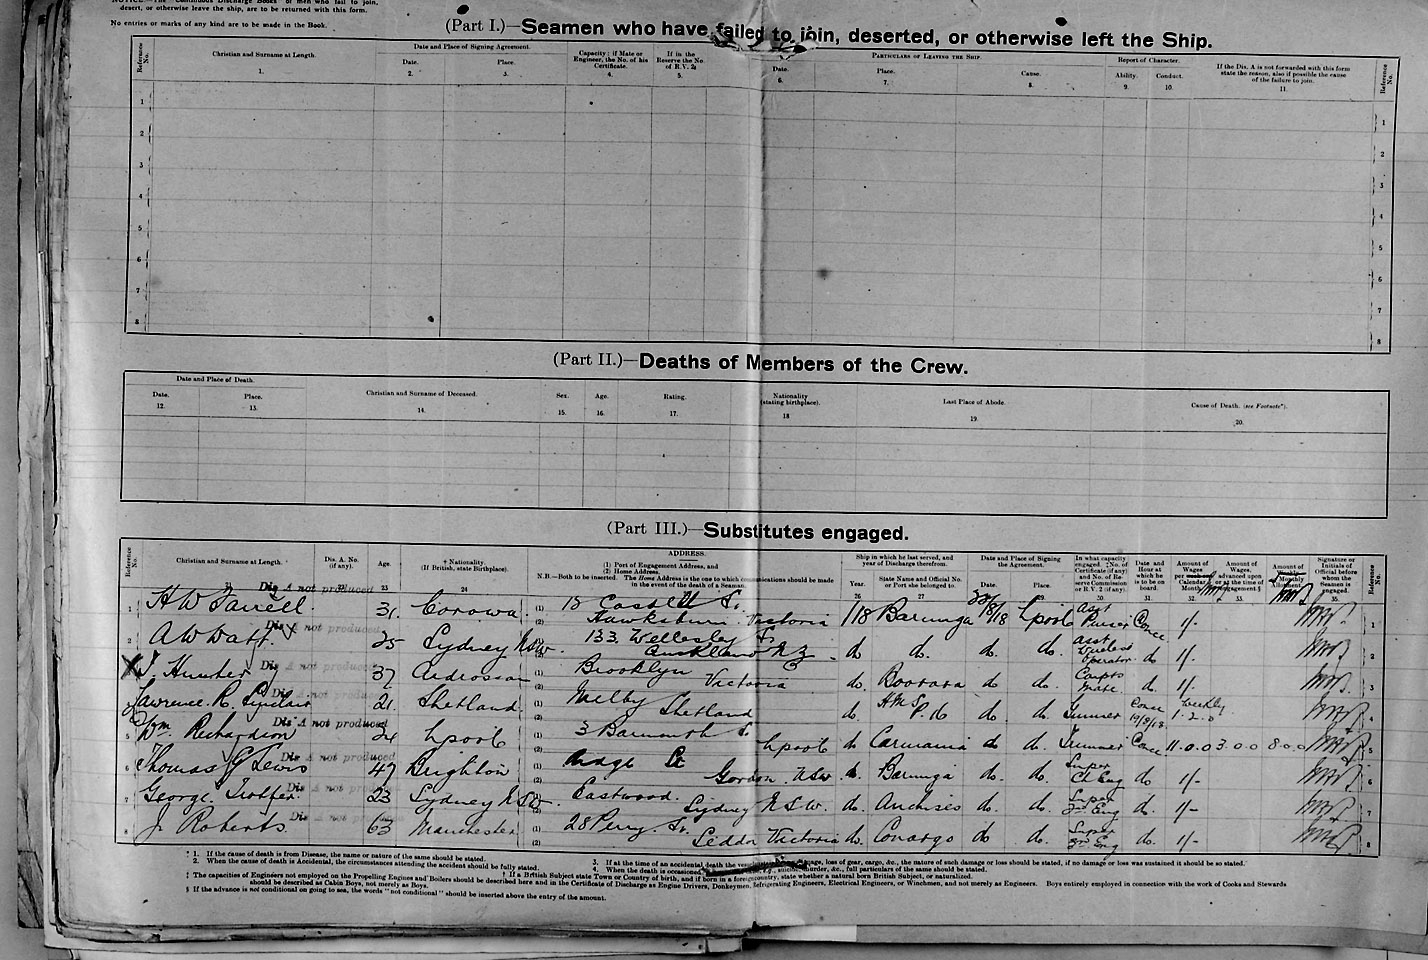 desert, or otherwise leave the ship, are to be returned with this form.
No entries or marks of any kind are to be made in the Book.
(Part I.)—Seamen who have failed to join, deserted, or otherwise left the Ship.
Reference No. Christian and Surname at Length. 1. Date and Place of Signing Agreement. Date. 2. Place. 3. Capacity; if Mate or Engineer, the No. of his Certificate. 4. If in the Reserve the No. of R.V. 2. 5. Particulars of Leaving the Ship. Date. 6. Place. 7. Cause. 8. Report of Character. Ability. 9. Conduct. 10. If the Dis. A is not forwarded with this form state the reason, also if possible the cause of the failure to join. 11. Reference No.
1 1
2 2
3 3
4 4
5 5
6 6
7 7
8 8
(Part II.)—Deaths of Members of the Crew.
Date and Place of Death. Date. 12. Place. 13. Christian and Surname of Deceased. 14. Sex. 15. Age. 16. Rating. 17. Nationality (stating birthplace). 18 Last Place of Abode. 19. Cause of Death. (see Footnote*). 20.
(Part III.)—Substitutes engaged.
Reference No. Christian and Surname at Length. Dis. A. No. (if any). Age. 23 †Nationality. (If British, state Birthplace). 24 ADDRESS. (1) Port of Engagement Address, and (2) Home Address. N.B.—Both to be inserted. The Home Address is the one to which communications should be made in the event of the death of a Seaman. Ship in which he last served, and year of Discharge therefrom. Year. 26 State Name and Official No. or Port she belonged to. 27 Date and Place of Signing the Agreement. Date. Place. 29. In what capacity engaged. 30. Date and Hour at which he is to be on board. 31. Amount of Wages per Calendar Month. 32. Amount of Wages advanced upon or at the time of engagement.§ 33. Amount of Monthly Allotment. Signature or Initials of Official before whom the Seaman is engaged. 35. Reference No.
1 H W Farrell. Dis A not produced 31. Corowa. (1) 13 Castle St. (2) Hawksburn Victoria 1/18 Barunga 30/8/18 Lpool Asst Purser Once 1/- 1
2 A W Watt. Dis A not produced 25 Sydney NSW. (1) 133 Wellesley St (2) Auckland N Z do do. do. do. asst Wireless Operator do 1/- 2
X J. Hunter Dis A not produced 37 Ardrossan (1) Brooklyn (2) Victoria do. Boorara do do. 1/- 3
Lawrence R. Sinclair Dis A not produced 21. Shetland. (1) Melby (2) Shetland do. HMS P. 16 do. do. Once 19/8/18 Weekly 1. 2. 0 4
5 Wm. Richardson Dis A not produced 24 Lpool (1) 3 Barmouth St (2) Lpool do Carmania do do. Once 11.0.0 3.0.0 8.0.0 5
6 Thomas G Lewis Dis A not produced 47 Brighton (1) (2) Gordon. NSW. do. Barunga do. do. Super Ch Eng do 1/- 6
7 George Trotter. Dis A not produced 23 Sydney NSW. (1) Eastwood. (2) Sydney N.S.W. do. Anchises do. do. Super 2nd Eng do. 1/- 7
8 J. Roberts. Dis A not produced 63 Manchester (1) 28 Perry St. (2) Victoria do. Conargo do do. Super 3rd Eng do. 1/- 8
* 1. If the cause of death is from Disease, the name or nature of the same should be stated.
2. When the cause of death is Accidental, the circumstances attending the accident should be fully stated.
3. If at the time of an accidental death the loss of gear, cargo, &c., the nature of such damage or loss should be stated, if no damage or loss was sustained it should be so stated.
4. When the death is occasioned suicide, murder, &c., full particulars of the same should be stated.
† If a British Subject state Town or Country of birth, and if born in a foreign country, state whether a natural born British Subject, or naturalized.
‡ The capacities of Engineers not employed on the Propelling Engines and Boilers should be described here and in the Certificate of Discharge as Engine Drivers, Donkeymen, Refrigerating Engineers, Electrical Engineers, or Winchmen, and not merely as Engineers. Boys entirely employed in connection with the work of Cooks and Stewards
should be described as Cabin Boys, not merely as Boys.
§ If the advance is not conditional on going to sea, the words "not conditional" should be inserted above the entry of the amount.